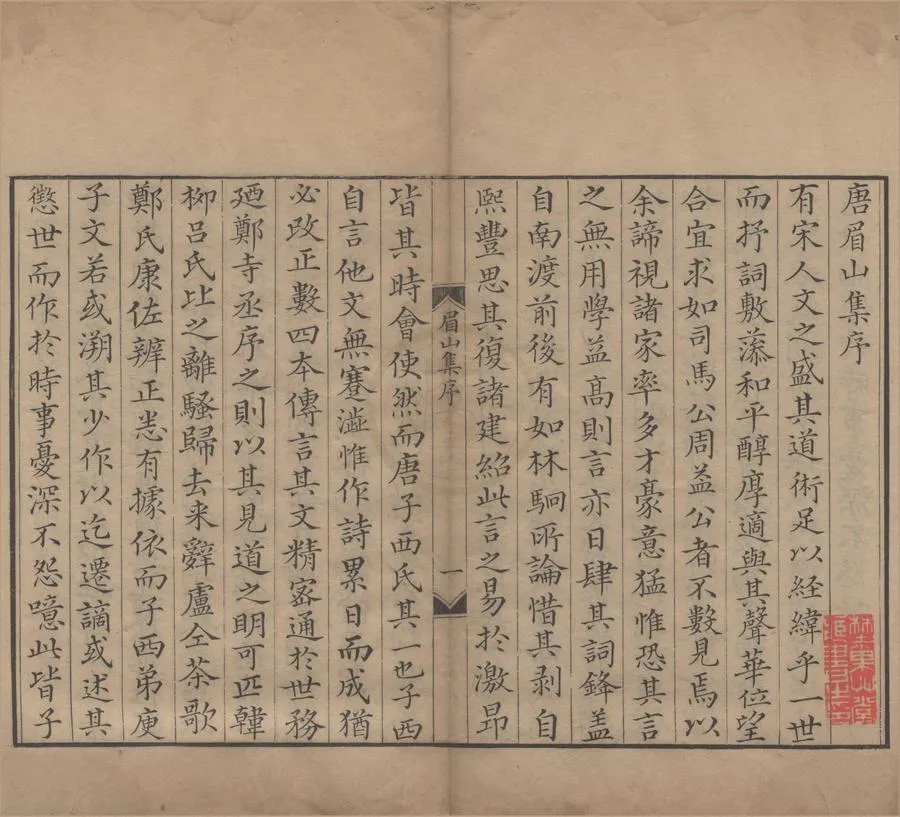 唐眉山集序
有宋人文之盛其道術足以経緯乎一世
而抒詞敷藻和平醇厚適與其聲華位望
合宜求如司馬公周益公者不數見焉以
余諦視諸家率多才豪意猛惟恐其言
之無用學益髙則言亦日肆其詞鋒盖
自南渡前後有如林駉所論惜其剥自
熙豐思其復諸建紹此言之易於激昂
眉山集序
一
皆其時會使然而唐子西氏其一也子西
自言他文無蹇澁惟作詩累日而成猶
必改正數四本傳言其文精宻通於世務
廼鄭寺丞序之則以其見道之明可匹韓
柳吕氏比之離騷歸去来辭盧仝茶歌
鄭氏康佐辨正悉有據依而子西弟庚
子文若或溯其少作以迄遷謫或述其
懲世而作於時事憂深不怨噫此皆子